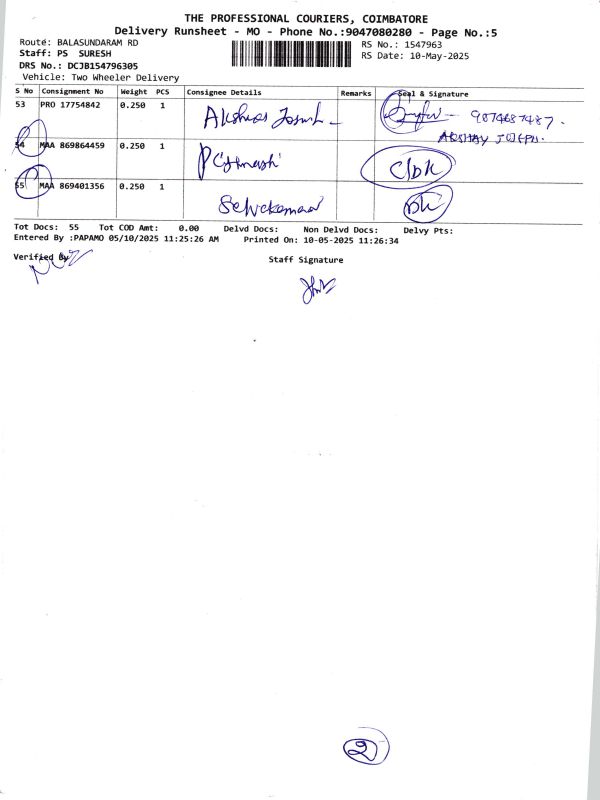 THE PROFESSIONAL COURIERS, COIMBATORE
Delivery Runsheet - MO - Phone No.:9047080280 - Page No.:5
Route: BALASUNDARAM RD
RS No.: 1547963
Staff: PS SURESH
RS Date: 10-May-2025
DRS No.: DCJB154796305
Vehicle: Two Wheeler Delivery
S No Consignment No Weight PCS Consignee Details Remarks Seal & Signature
53 PRO 17754842 0.250 1 9074687487.
AKSHAY JOSEPH.
54 MAA 869864459 0.250 1
55 MAA 869401356 0.250 1
Selvakumar
Tot Docs: 55 Tot COD Amt: 0.00 Delvd Docs: Non Delvd Docs: Delvy Pts:
Entered By :PAPAMO 05/10/2025 11:25:26 AM Printed On: 10-05-2025 11:26:34
Verified By
Staff Signature
2